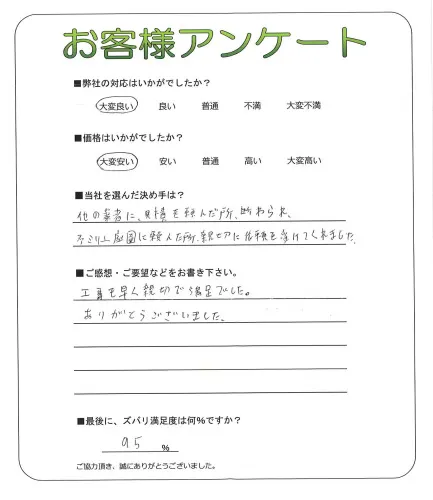 お客様アンケート
■弊社の対応はいかがでしたか?
大変良い 良い 普通 不満 大変不満
■価格はいかがでしたか?
大変安い 安い 普通 高い 大変高い
■当社を選んだ決め手は?
他の業者に、見積を頼んだ所、断わられ、
に頼んだ所、親切に依頼を受けてくれました。
■ご感想・ご要望などをお書き下さい。
工事も早く親切で満足でした。
ありがとうございました。
■最後に、ズバリ満足度は何%ですか?
95 %
ご協力頂き、誠にありがとうございました。